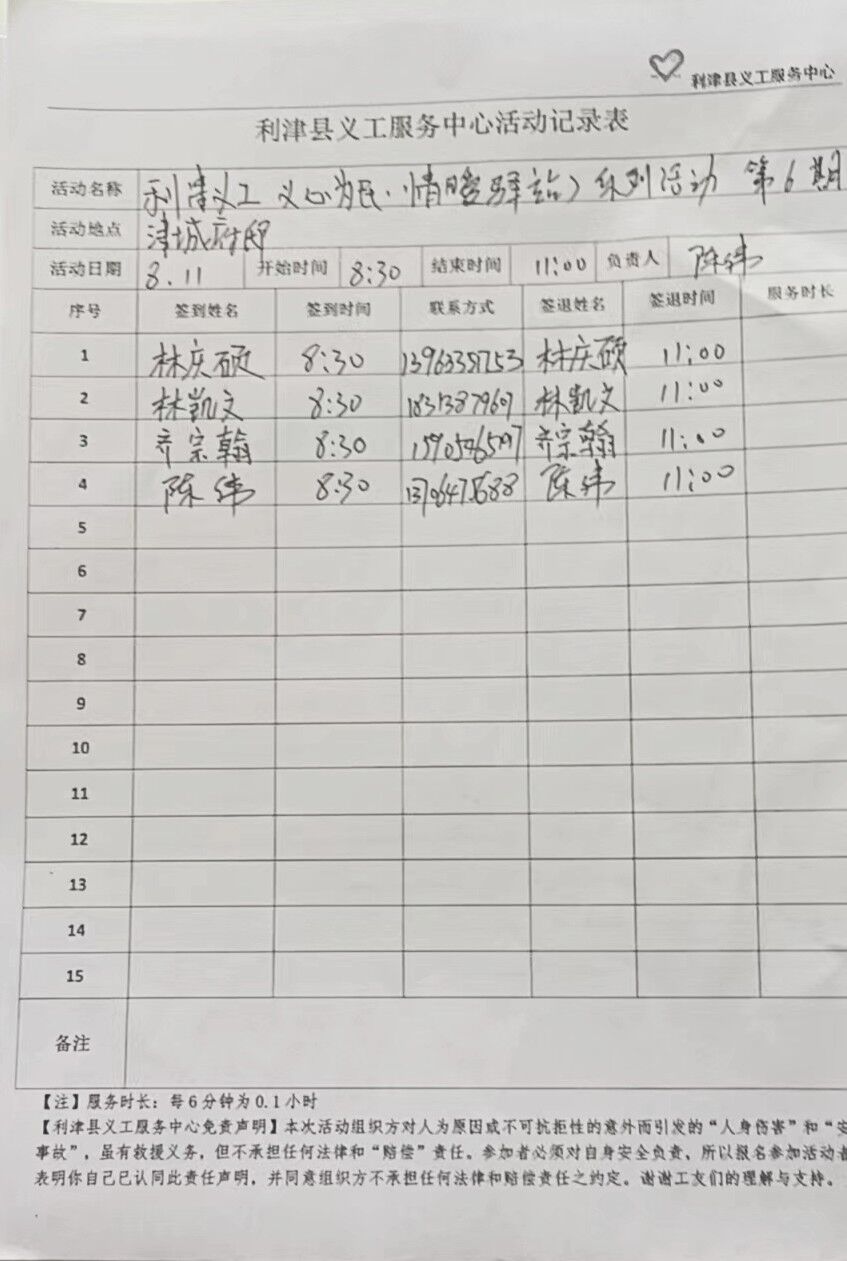 利津县义工服务中心
利津县义工服务中心活动记录表
活动名称 利津义工 义心为民·情暖驿站 系列活动 第6期
活动地点 津城府邸
活动日期 8.11 开始时间 8:30 结束时间 11:00 负责人 陈纬
序号 签到姓名 签到时间 联系方式 签退姓名 签退时间 服务时长
1 林庆硕 8:30 林庆硕 11:00
2 林凯文 8:30 林凯文 11:00
3 齐宗翰 8:30 齐宗翰 11:00
4 陈纬 8:30 陈纬 11:00
5
6
7
8
9
10
11
12
13
14
15
备注
【注】服务时长：每6分钟为0.1小时
【利津县义工服务中心免责声明】本次活动组织方对人为原因或不可抗拒性的意外而引发的“人身伤害”和“安
事故”，虽有救援义务，但不承担任何法律和“赔偿”责任。参加者必须对自身安全负责，所以报名参加活动者
表明你自己已认同此责任声明，并同意组织方不承担任何法律和赔偿责任之约定。谢谢工友们的理解与支持。